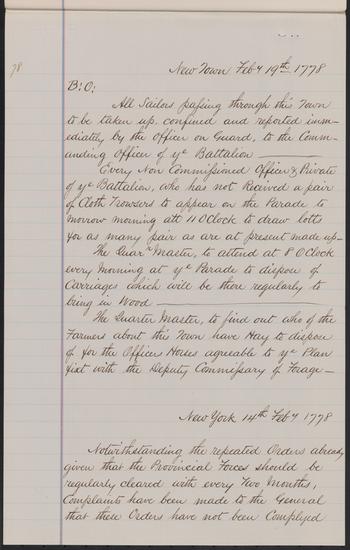 78
New Town Feby 19th 1778
B: O:
All Sailors passing through this Town
to be taken up, confined and reported imm-
ediately by the Officer on Guard, to the Comm-
anding Officer of ye Battalion
Every Non Commissioned Officer & Private
of ye Battalion, who has not Received a pair
of Cloth Trowsers to appear on the Parade to
morrow morning att 11 OClock to draw lotts
for as many pair as are at present made up—
The Quarr Master, to attend at 8 OClock
every Morning at ye Parade to dispose of
Carriages which will be there regularly to
bring in Wood
The Quarter Master, to find out who of the
Farmers about this Town have Hay to dispose
of for the Officers Horses agreeable to ye Plan
fixt with the Deputy Commissary of Forage—
New York 14th Feby 1778
Notwithstanding the repeated Orders already
given that the Provincial Forces should be
regularly cleared with every Two Months,
Complaints have been made to the General
that these Orders have not been Complyed